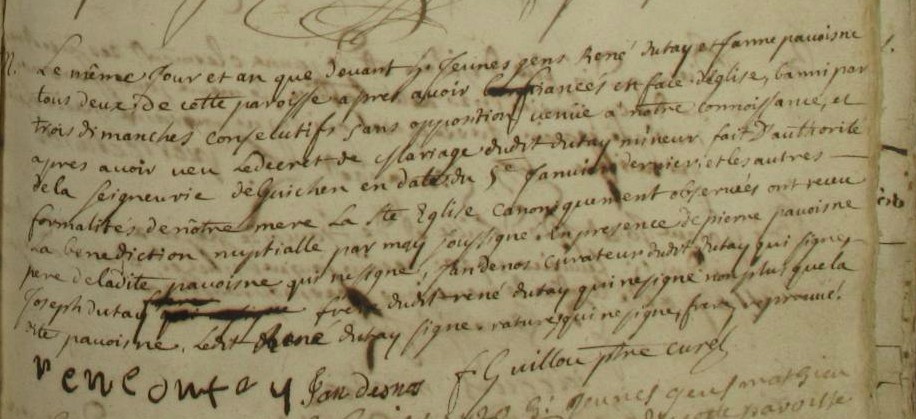 Le même Jour et an que devant les Jeunes gens René dutay et Janne pavoisne
tous deux de cette paroisse apres avoir fiancés en face d'Eglise, banni par
trois dimanches consecutifs sans opposition venüe à nôtre connoissance, et
apres avoir veu Le decret de Mariage dudit dutay mineur fait D'authorité
de la seigneurie de Guichen en date du 5e Janvier dernier, et les autres
formalités de nôtre mere La Ste Eglise canoniquement observées ont receu
La benediction nuptialle par moy soussigné. en presence de pierre pavoisne
pere de ladite pavoisne qui ne signe, Jan denos curateur dudit dutay qui signe,
Joseph dutay frere dudit rené dutay qui ne signe non plus que la
dite pavoisne. Ledit René dutay signe. rature, qui ne signe, frere, reprouvé.
rene outay Jan denos f Guillou ptre curé
Jeunes gens mathieu
paroisse